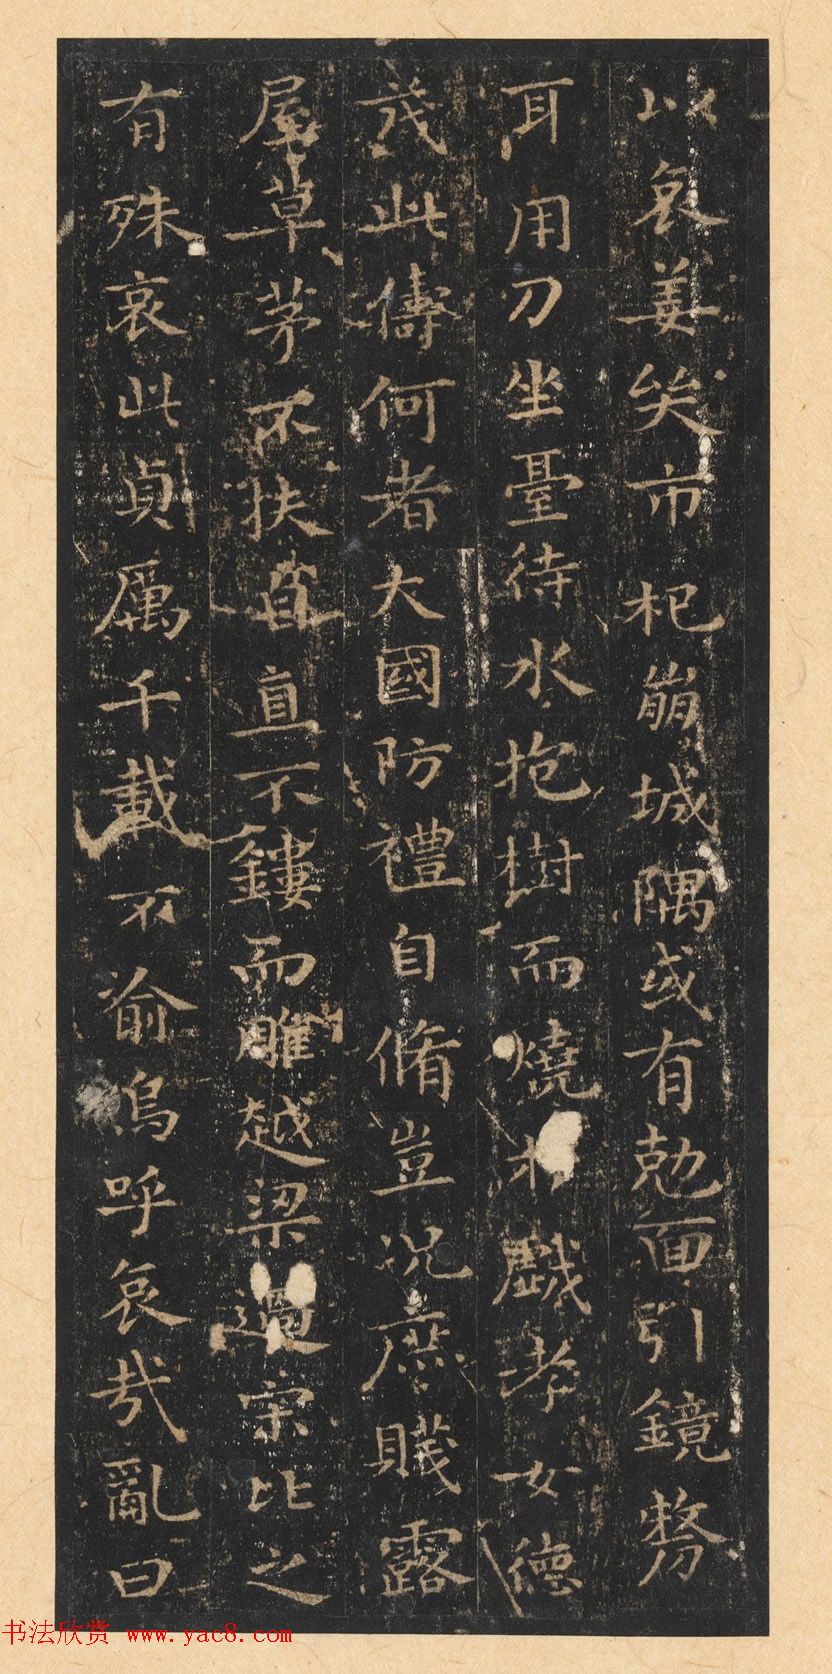 以哀姜哀姜矣市杞崩城隅或有勊面引鏡剺
耳用刀坐臺待水抱樹而燒於戲孝女德
茂此儔何者大國防禮自脩豈況庶賤露
屋草茅不扶自直不鏤而雕越梁過宋比之
有殊哀此貞厲千載不渝嗚呼哀哉亂曰
书法欣赏 www.yac8.com